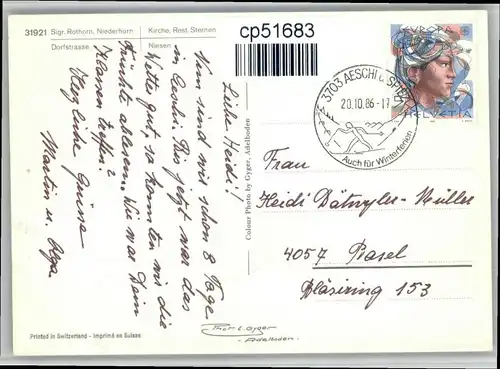 31921 Sigr. Rothorn, Niederhorn
Dorfstrasse
Kirche, Rest. Sternen
Niesen
cp51683
Liebe Heidi!
Nun sind wir schon 8 Tage
in Aeschi. Bis jetzt war das
Wetter gut, so konnten wir die
Früchte ablesen. Wie war Dein
Klassentreffen?
Herzliche Grüsse
Martin u.
Printed in Switzerland - Imprimé en Suisse
Colour Photo by Gyger, Adelboden
EUROPA
HELVETIA
3703 AESCHI B. SPIEZ
20.10.86-17
Auch für Winterferien
Frau
Heidi Dätwyler-Müller
4057 Basel
Bläsiring 153
Gyger
Adelboden